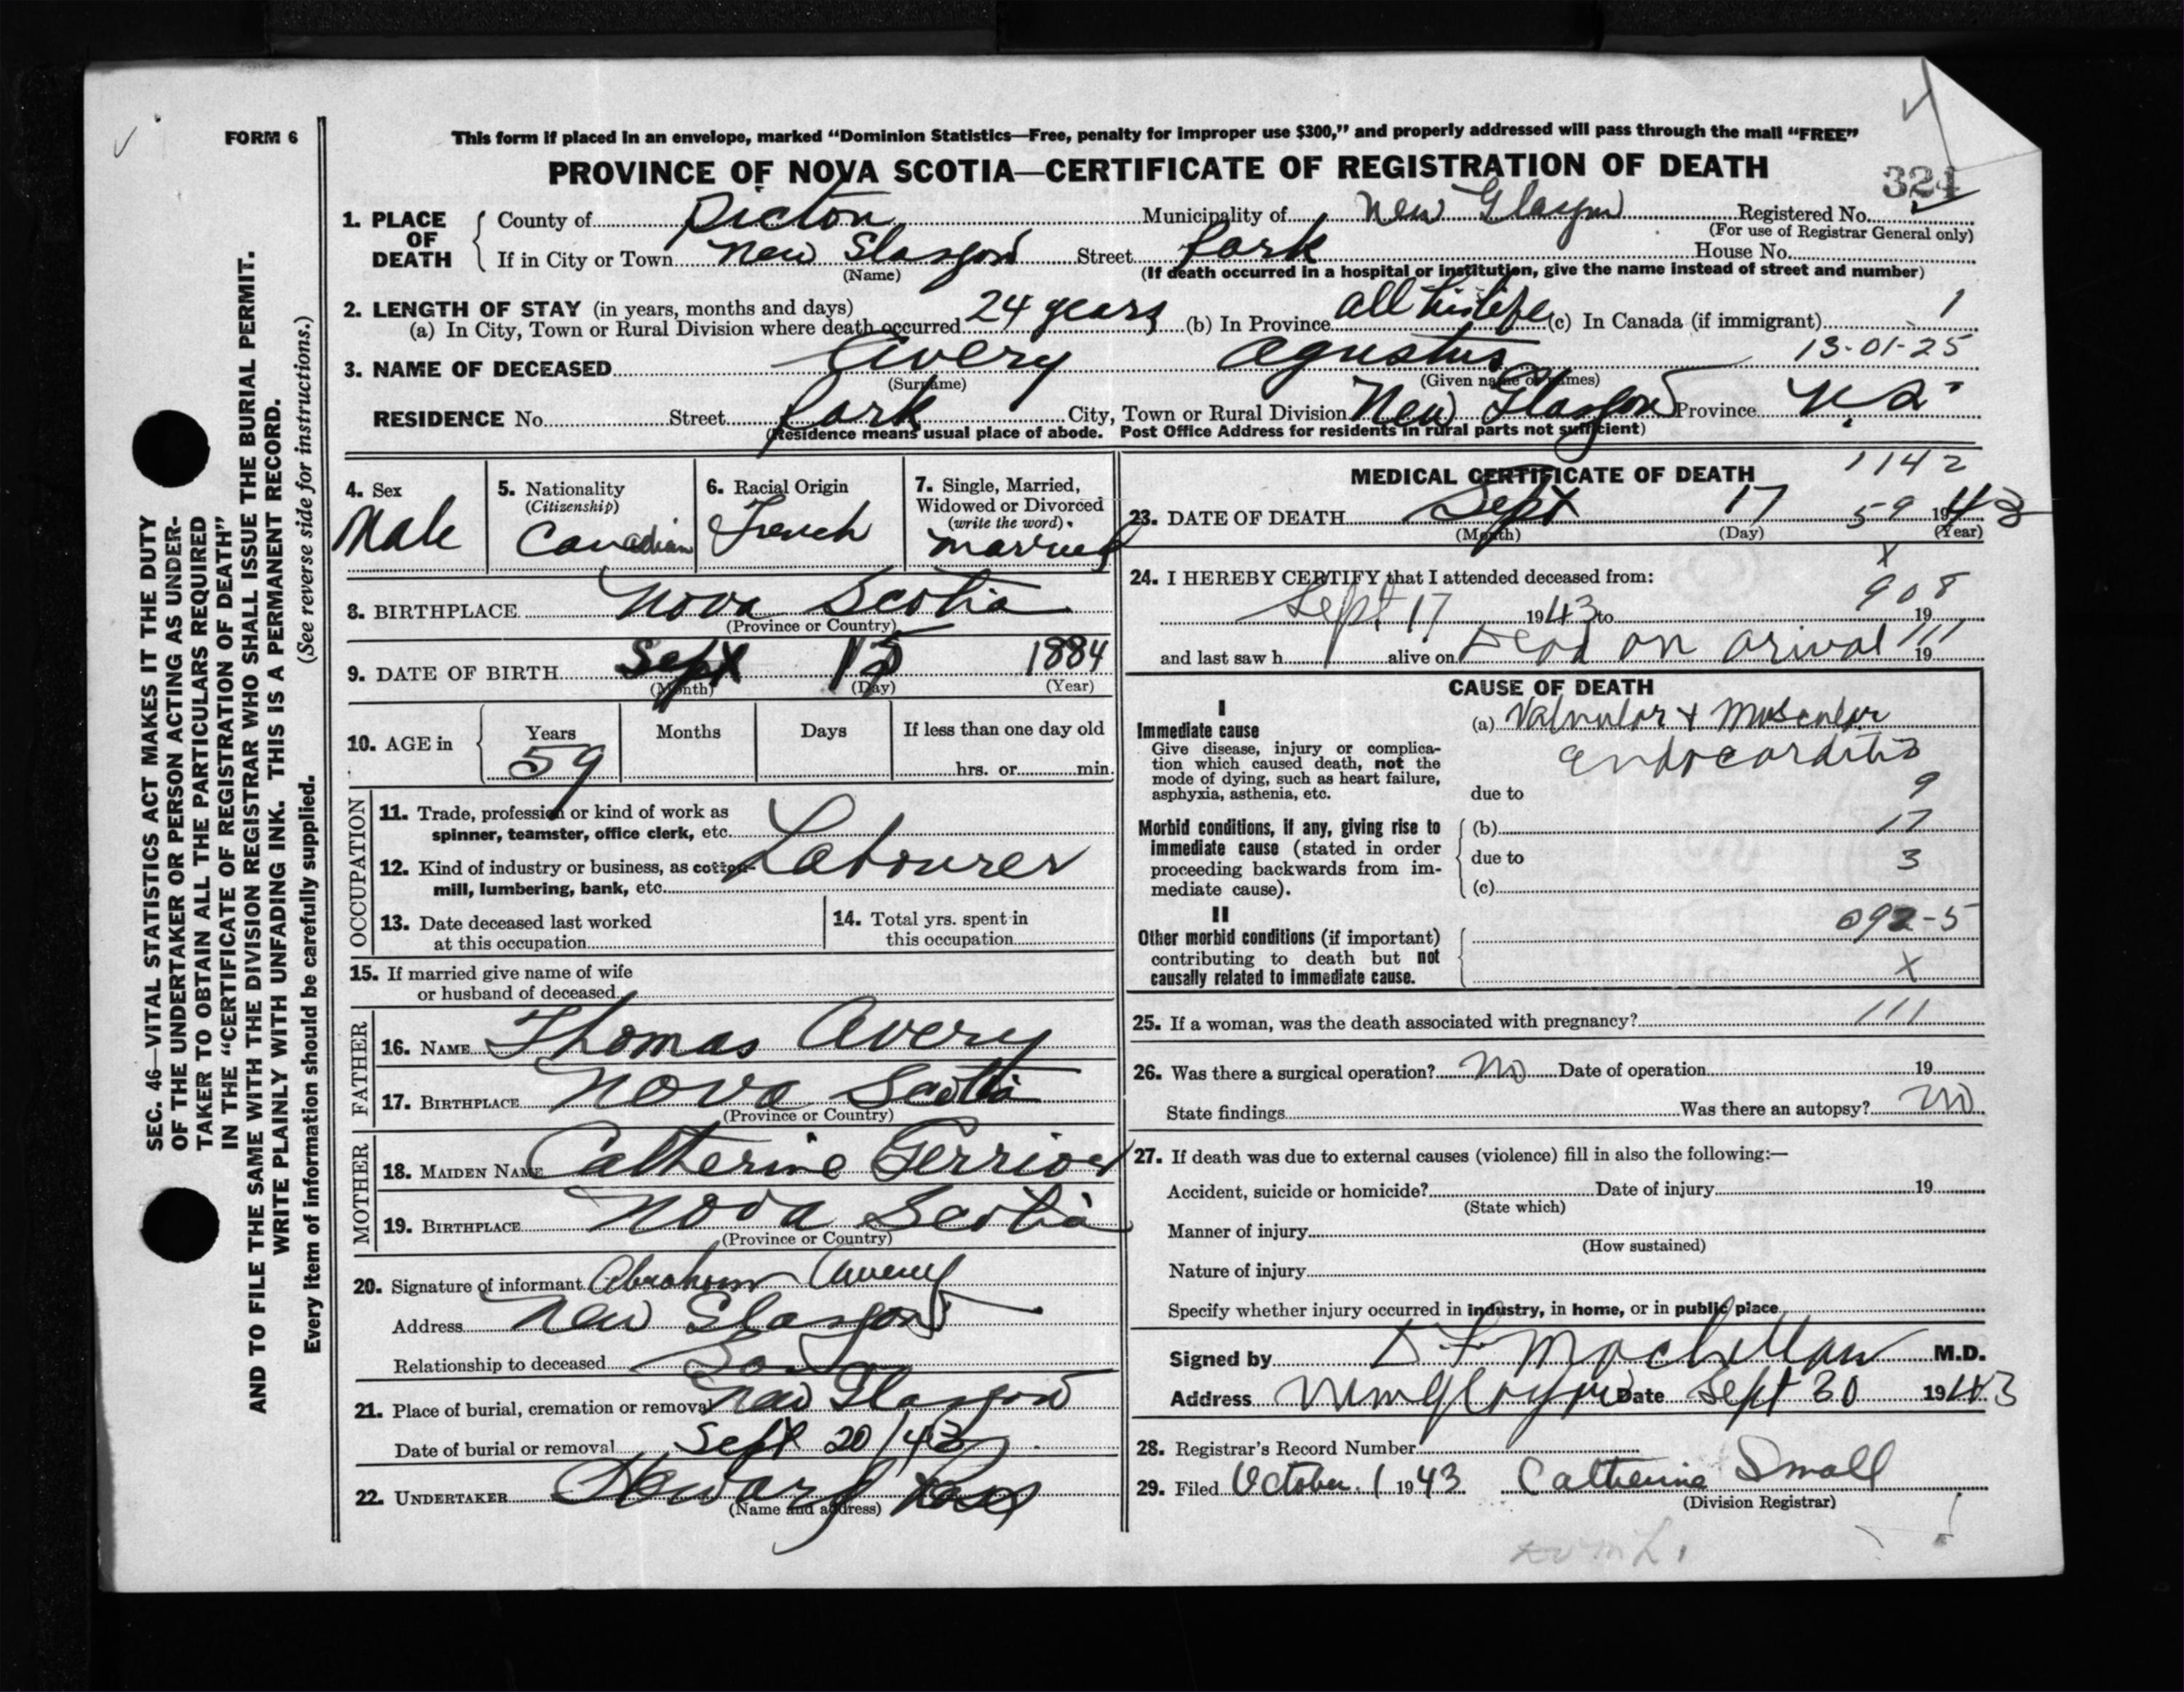 FORM 6
This form if placed in an envelope, marked "Dominion Statistics—Free, penalty for improper use $300," and properly addressed will pass through the mail "FREE"
PROVINCE OF NOVA SCOTIA—CERTIFICATE OF REGISTRATION OF DEATH
324
1. PLACE OF DEATH
County of Pictou Municipality of New Glasgow Registered No.
(For use of Registrar General only)
If in City or Town New Glasgow Street Park House No.
(Name) (If death occurred in a hospital or institution, give the name instead of street and number)
2. LENGTH OF STAY (in years, months and days)
(a) In City, Town or Rural Division where death occurred 24 years (b) In Province all his life (c) In Canada (if immigrant) 1
13-01-25
3. NAME OF DECEASED Avery Agustus
(Surname) (Given name or names)
RESIDENCE No. Street Park City, Town or Rural Division New Glasgow Province N.S.
(Residence means usual place of abode. Post Office Address for residents in rural parts not sufficient)
4. Sex Male
5. Nationality (Citizenship) Canadian
6. Racial Origin French
7. Single, Married, Widowed or Divorced (write the word) Married
8. BIRTHPLACE Nova Scotia
(Province or Country)
9. DATE OF BIRTH Sept 15 1884
(Month) (Day) (Year)
10. AGE in Years Months Days If less than one day old
59 hrs. or min.
OCCUPATION
11. Trade, profession or kind of work as
spinner, teamster, office clerk, etc.
12. Kind of industry or business, as cotton-
mill, lumbering, bank, etc. Labourer
13. Date deceased last worked
at this occupation
14. Total yrs. spent in
this occupation
15. If married give name of wife
or husband of deceased
FATHER
16. NAME Thomas Avery
17. BIRTHPLACE Nova Scotia
(Province or Country)
MOTHER
18. MAIDEN NAME Catherine
19. BIRTHPLACE Nova Scotia
(Province or Country)
20. Signature of informant Abraham Avery
Address New Glasgow
Relationship to deceased Son
21. Place of burial, cremation or removal New Glasgow
Date of burial or removal Sept 20/43
22. UNDERTAKER
(Name and address)
MEDICAL CERTIFICATE OF DEATH
1142
23. DATE OF DEATH Sept 17 59 1943
(Month) (Day) (Year)
X
24. I HEREBY CERTIFY that I attended deceased from:
908
Sept 17 1943 to 19
and last saw h alive on Dead on arival 111 19
CAUSE OF DEATH
I
Immediate cause
Give disease, injury or complica-
tion which caused death, not the
mode of dying, such as heart failure,
asphyxia, asthenia, etc.
(a) Valvular + Muscular
endocarditis
due to 9
Morbid conditions, if any, giving rise to
immediate cause (stated in order
proceeding backwards from im-
mediate cause).
(b) 17
due to 3
(c)
II
Other morbid conditions (if important)
contributing to death but not
causally related to immediate cause.
092-5
X
25. If a woman, was the death associated with pregnancy? 111
26. Was there a surgical operation? No Date of operation 19
State findings Was there an autopsy? No
27. If death was due to external causes (violence) fill in also the following:—
Accident, suicide or homicide? Date of injury 19
(State which)
Manner of injury
(How sustained)
Nature of injury
Specify whether injury occurred in industry, in home, or in public place
Signed by D F MacLellan M.D.
Address New Glasgow Date Sept 30 1943
28. Registrar's Record Number
29. Filed October 1 1943 Catherine Small
(Division Registrar)
SEC. 46—VITAL STATISTICS ACT MAKES IT THE DUTY
OF THE UNDERTAKER OR PERSON ACTING AS UNDER-
TAKER TO OBTAIN ALL THE PARTICULARS REQUIRED
IN THE "CERTIFICATE OF REGISTRATION OF DEATH"
AND TO FILE THE SAME WITH THE DIVISION REGISTRAR WHO SHALL ISSUE THE BURIAL PERMIT.
WRITE PLAINLY WITH UNFADING INK. THIS IS A PERMANENT RECORD.
Every item of information should be carefully supplied. (See reverse side for instructions.)